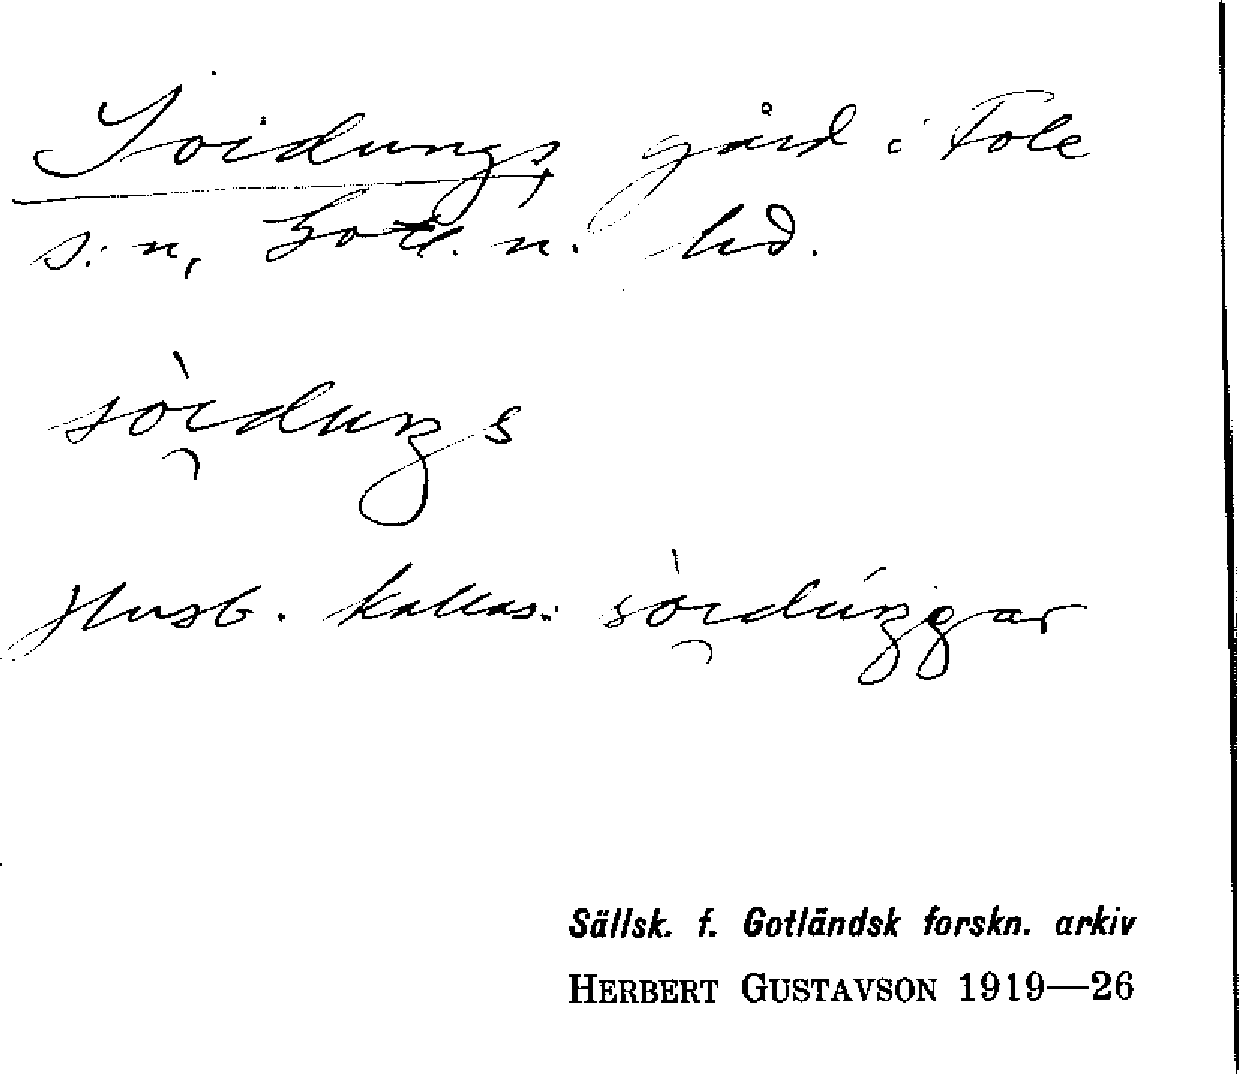 Soidungs gård i Fole
s:n, Gotl. n. hd.
sòi̯duŋs
Husb. kallas: sòi̯dúŋgar
Sällsk. f. Gotländsk forskn. arkiv
HERBERT GUSTAVSON 1919—26